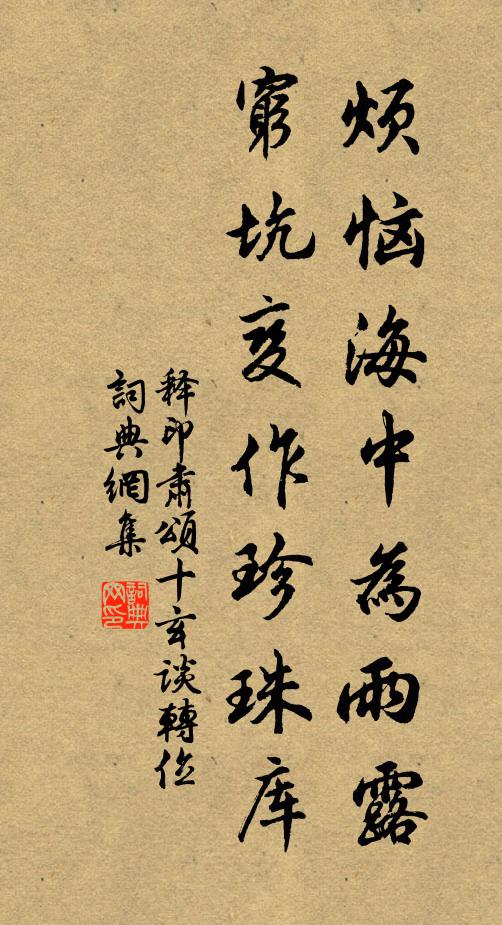 烦恼海中為雨露
窮坑变作珍珠库
释印肃頌十玄談轉位
詞典網集
詞典
网印